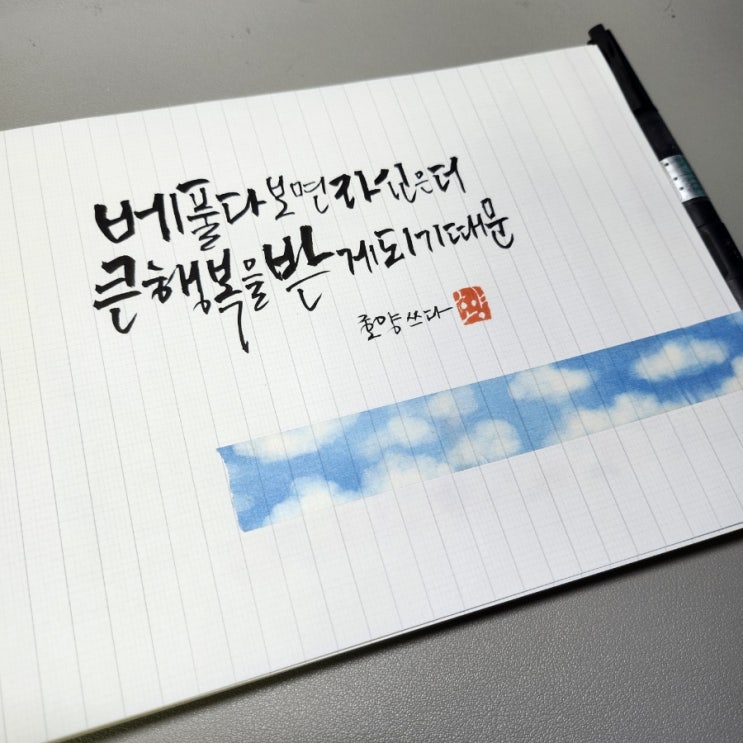 베풀다 보면 자신은 더
큰 행복을 받게 되기 때문
호양 쓰다
호양